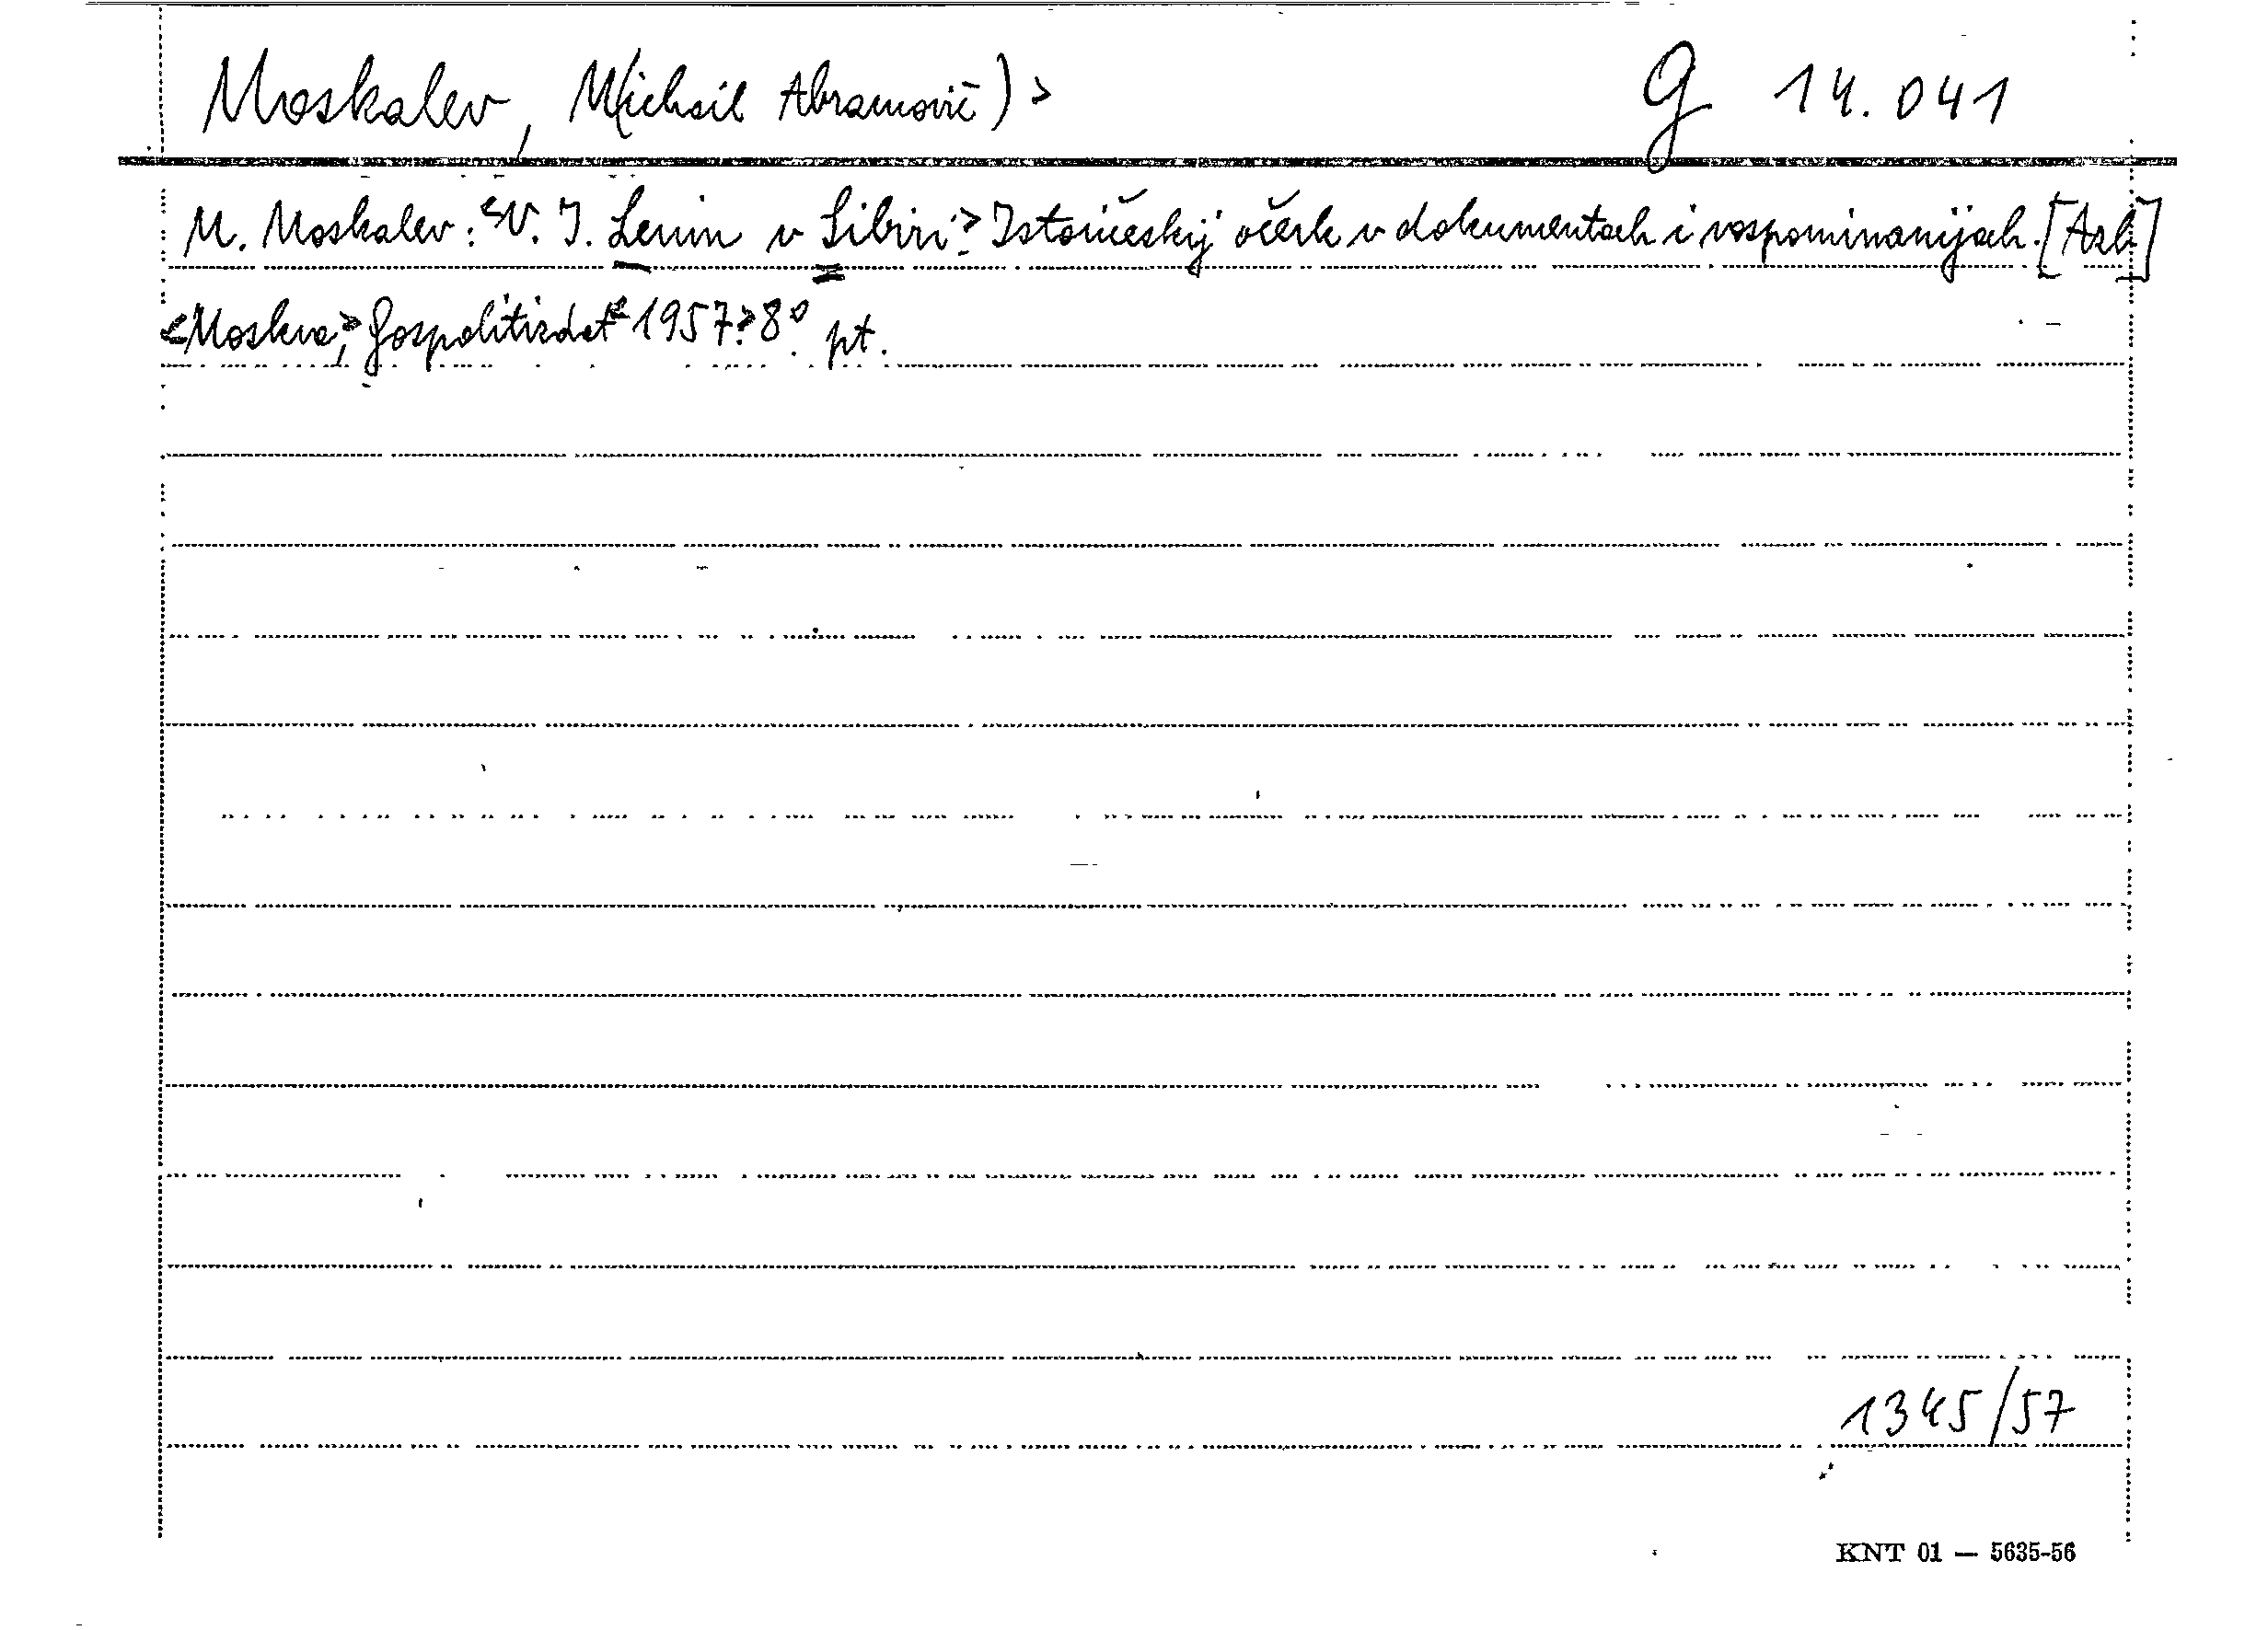 Moskalev, M(ichail Abramovič)> G 14.041
M. Moskalev: <V. I. Lenin v Sibiri.> Istoričeskij očerk v dokumentach i vospominanijach. [Azb.]
<Moskva,> Gospolitizdat <1957.> 8°. pt.
1345/57
KNT 01 — 5635-56